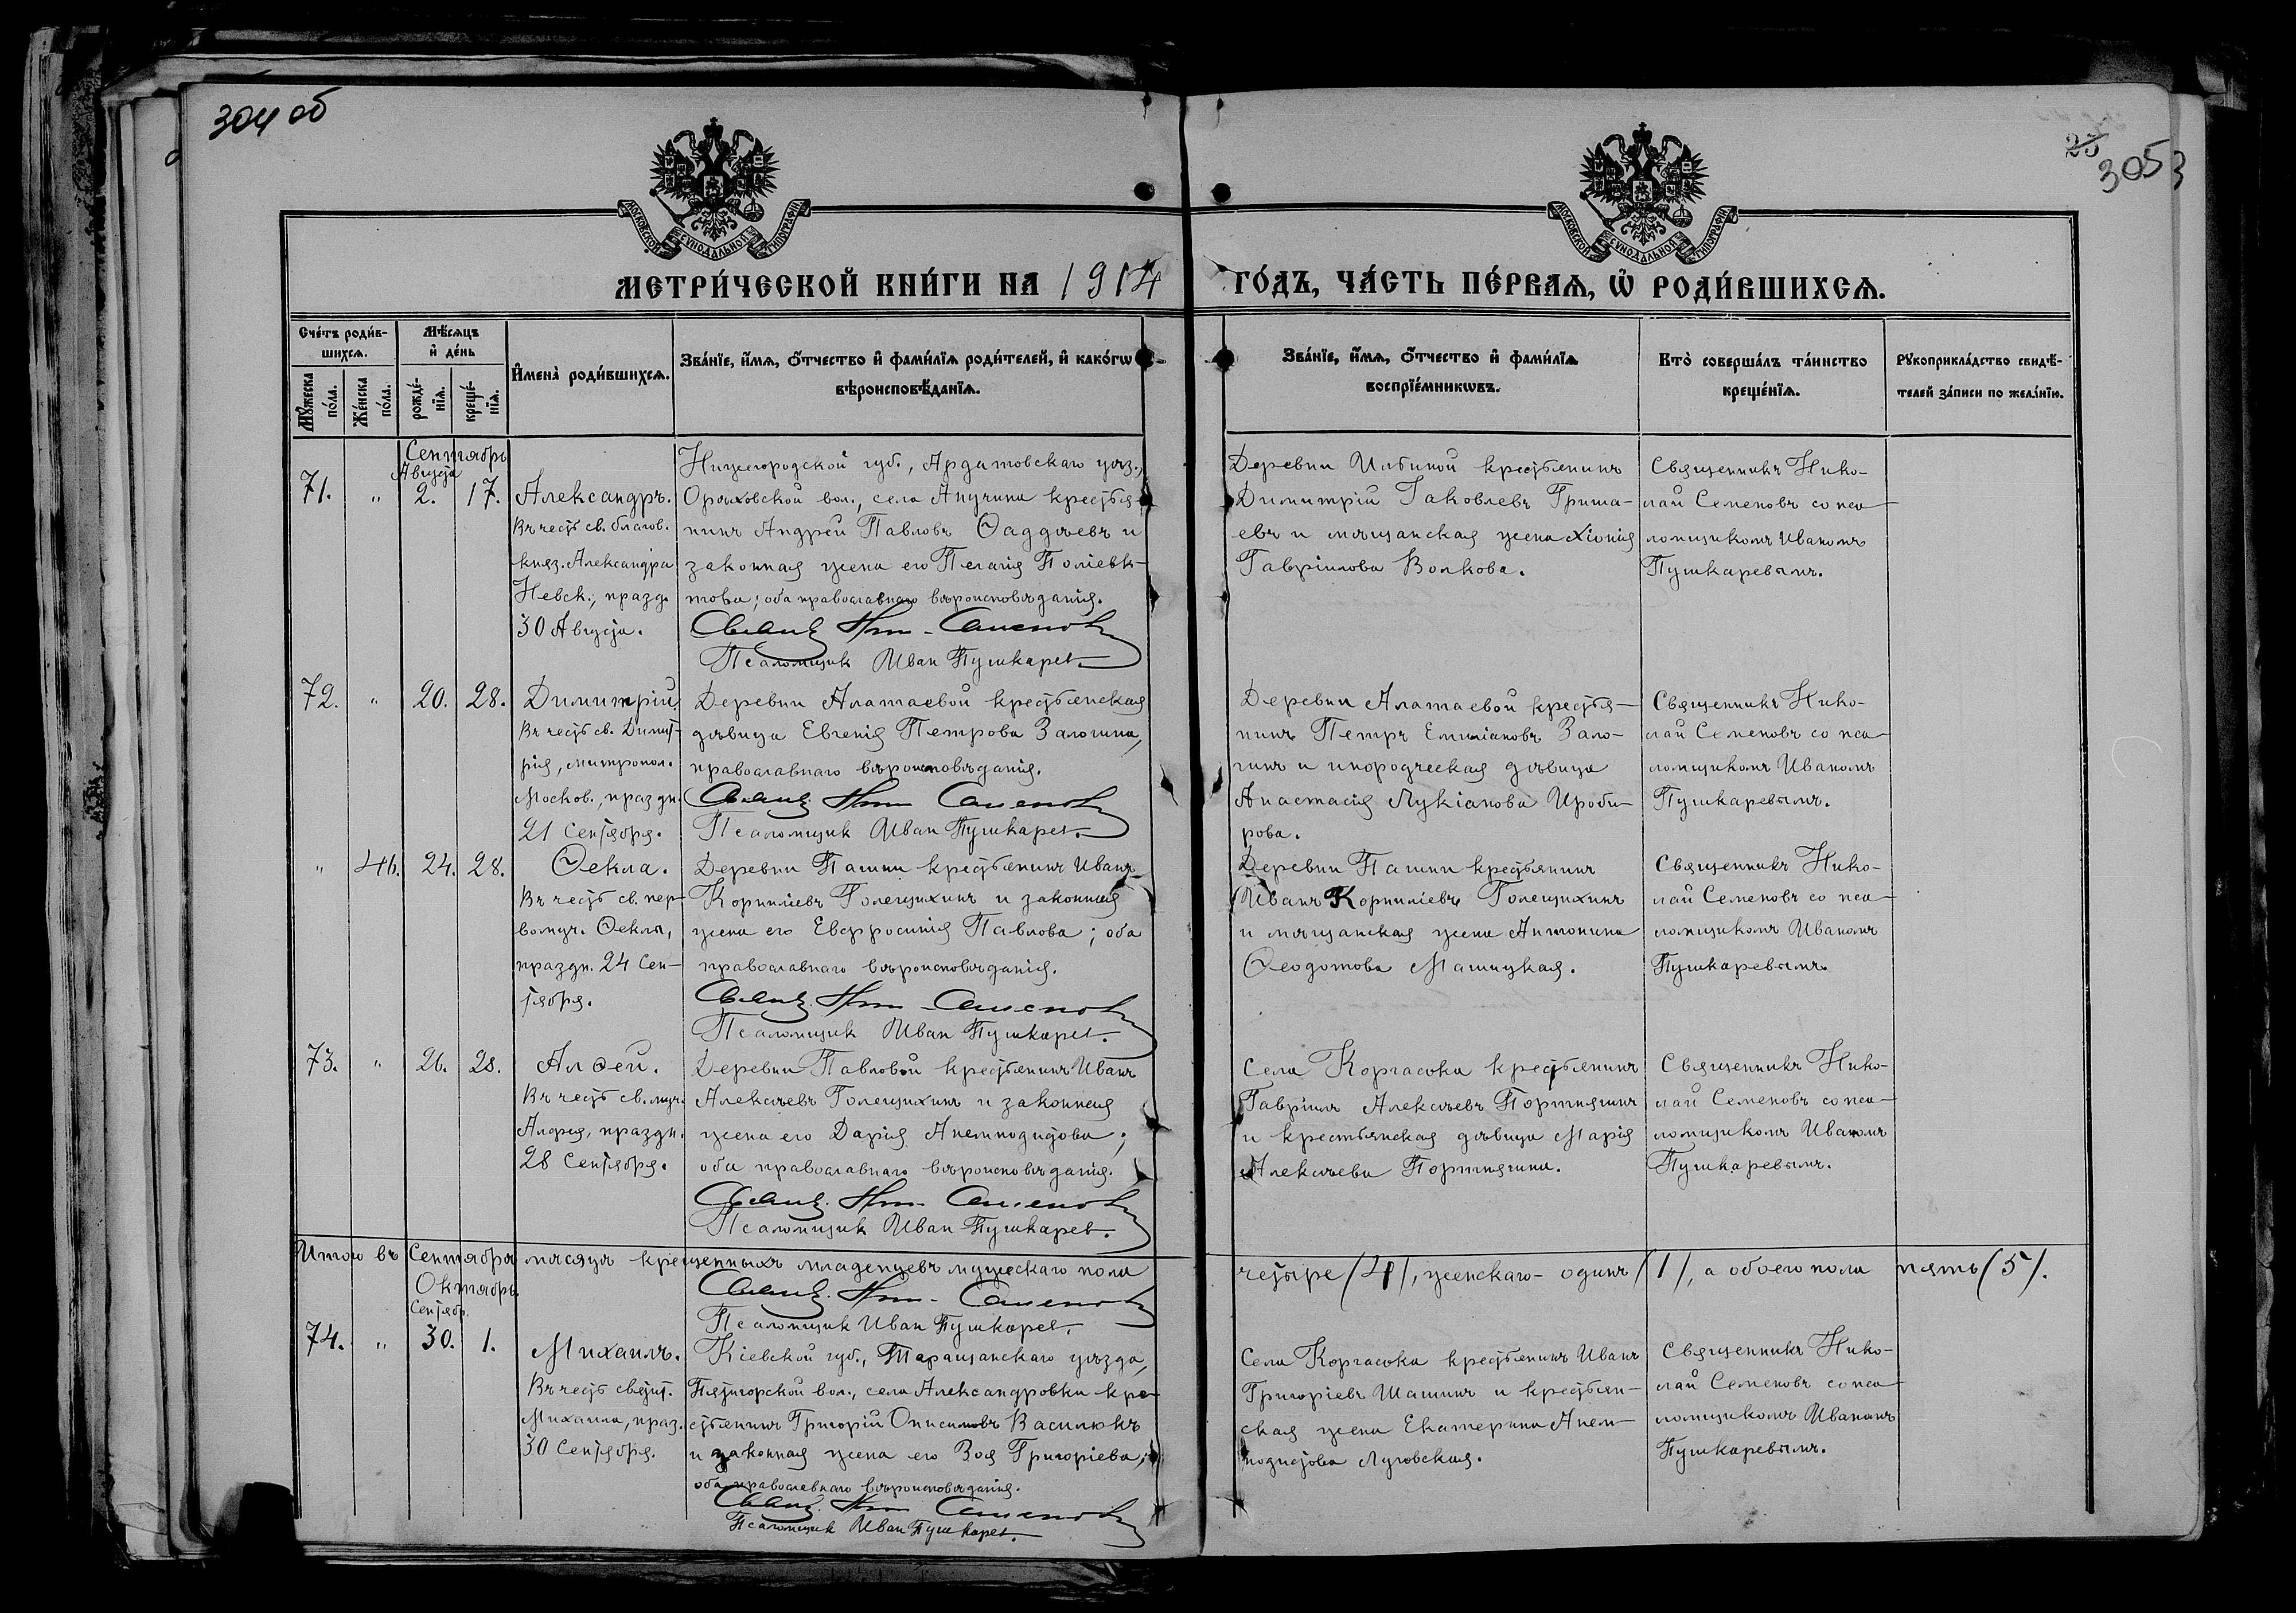 304 об
25
305
3
МОСКОВСКОЙ СѴНОДАЛЬНОЙ ТИПОГРАФІИ
МОСКОВСКОЙ СѴНОДАЛЬНОЙ ТИПОГРАФІИ
МЕТРИ́ЧЕСКОЙ КНИ́ГИ НА 1914 ГО́ДЪ, ЧА́СТЬ ПЕ́РВАѦ, Ѡ҆ РОДИ́ВШИХСѦ.
Сче́тъ роди́в-
шихсѧ.
Мꙋ́жеска по́ла.
Же́нска по́ла.
Мѣ́сѧцъ
и҆ де́нь
рожде́-
нїѧ.
креще́-
нїѧ.
И҆мена̀ роди́вшихсѧ.
Зва́нїе, и҆́мѧ, ѻ҆́тчество и҆ фами́лїѧ роди́телей, и҆ како́гѡ
вѣроисповѣ́данїѧ.
Зва́нїе, и҆́мѧ, ѻ҆́тчество и҆ фами́лїѧ
воспрїе́мникѡвъ.
Кто̀ соверша́лъ та́инство
креще́нїѧ.
Рꙋкоприкла́дство свидѣ́-
телей за́писи по жела́нїю.
Сентябрь
Августа
71. " 2. 17.
Александръ.
Въ честь св. благов.
княз. Александра
Невск., празд.
30 Августа.
Нижегородской губ., Ардатовскаго уѣз.,
Орѣховской вол., села Анучина крестья-
нинъ Андрей Павловъ Ѳаддѣевъ и
законная жена его Пелагія Поліевк-
това; оба православнаго вѣроисповѣданія.
Священ. Ник. Семеновъ
Псаломщик Иван Пушкарев.
Деревни Илбиной крестьянинъ
Димитрій Іаковлевъ Гриша-
евъ и мѣщанская жена Хіонія
Гавріилова Волкова.
Священникъ Нико-
лай Семеновъ со пса-
ломщикомъ Иваномъ
Пушкаревымъ.
72. " 20. 28.
Димитрій.
Въ честь св. Димит-
рія, митропол.
Москов., праздн.
21 Сентября.
Деревни Алатаевой крестьянская
дѣвица Евгенія Петрова Залогина,
православнаго вѣроисповѣданія.
Священ. Ник. Семеновъ
Псаломщик Иван Пушкарев.
Деревни Алатаевой крестья-
нинъ Петръ Емиліановъ Зало-
гинъ и инородческая дѣвица
Анастасія Лукіанова Ироби-
рова.
Священникъ Нико-
лай Семеновъ со пса-
ломщикомъ Иваномъ
Пушкаревымъ.
" 46. 24. 28.
Ѳекла.
Въ честь св. пер-
вомуч. Ѳеклы,
праздн. 24 Сен-
тября.
Деревни Пашни крестьянинъ Иванъ
Корниліевъ Голещихинъ и законная
жена его Евфросинія Павлова; оба
православнаго вѣроисповѣданія.
Священ. Ник. Семеновъ
Псаломщик Иван Пушкарев.
Деревни Пашни крестьянинъ
Иванъ Корниліевъ Голещихинъ
и мѣщанская жена Антонина
Ѳеодотова Машицкая.
Священникъ Нико-
лай Семеновъ со пса-
ломщикомъ Иваномъ
Пушкаревымъ.
73. " 26. 28.
Алѳей.
Въ честь св. муч.
Алфея, праздн.
28 Сентября.
Деревни Павловой крестьянинъ Иванъ
Алексѣевъ Голещихинъ и законная
жена его Дарія Анемподидова;
оба православнаго вѣроисповѣданія.
Священ. Ник. Семеновъ
Псаломщик Иван Пушкарев.
Села Коргасока крестьянинъ
Гавріилъ Алексѣевъ Портнягинъ
и крестьянская дѣвица Марія
Алексѣева Портнягина.
Священникъ Нико-
лай Семеновъ со пса-
ломщикомъ Иваномъ
Пушкаревымъ.
Итого въ Сентябрѣ мѣсяцѣ крещенныхъ младенцевъ мужескаго пола четыре (4), женскаго - одинъ (1), а обоего пола пять (5).
Священ. Ник. Семеновъ
Псаломщик Иван Пушкарев.
Октябрь.
Сентябр.
74. " 30. 1.
Михаилъ.
Въ честь святит.
Михаила, праз.
30 Сентября.
Кіевской губ., Таращанскаго уѣзда,
Пятигорской вол., села Александровки кре-
стьянинъ Григорій Онисимовъ Василюкъ
и законная жена его Зоя Григоріева;
оба православнаго вѣроисповѣданія.
Священ. Ник. Семеновъ
Псаломщик Иван Пушкарев.
Села Коргасока крестьянинъ Иванъ
Григоріевъ Шашинъ и крестьян-
ская жена Екатерина Анем-
подистова Луговская.
Священникъ Нико-
лай Семеновъ со пса-
ломщикомъ Иваномъ
Пушкаревымъ.